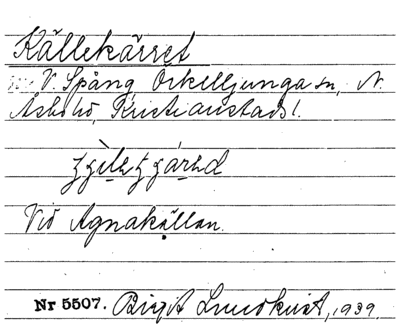 Källekärret
V. Spång, Örkelljunga sn, N.
Åsbo hd, Kristianstads l.
Vid Agnakällan.
Nr 5507. Birgit Lundkvist, 1939.